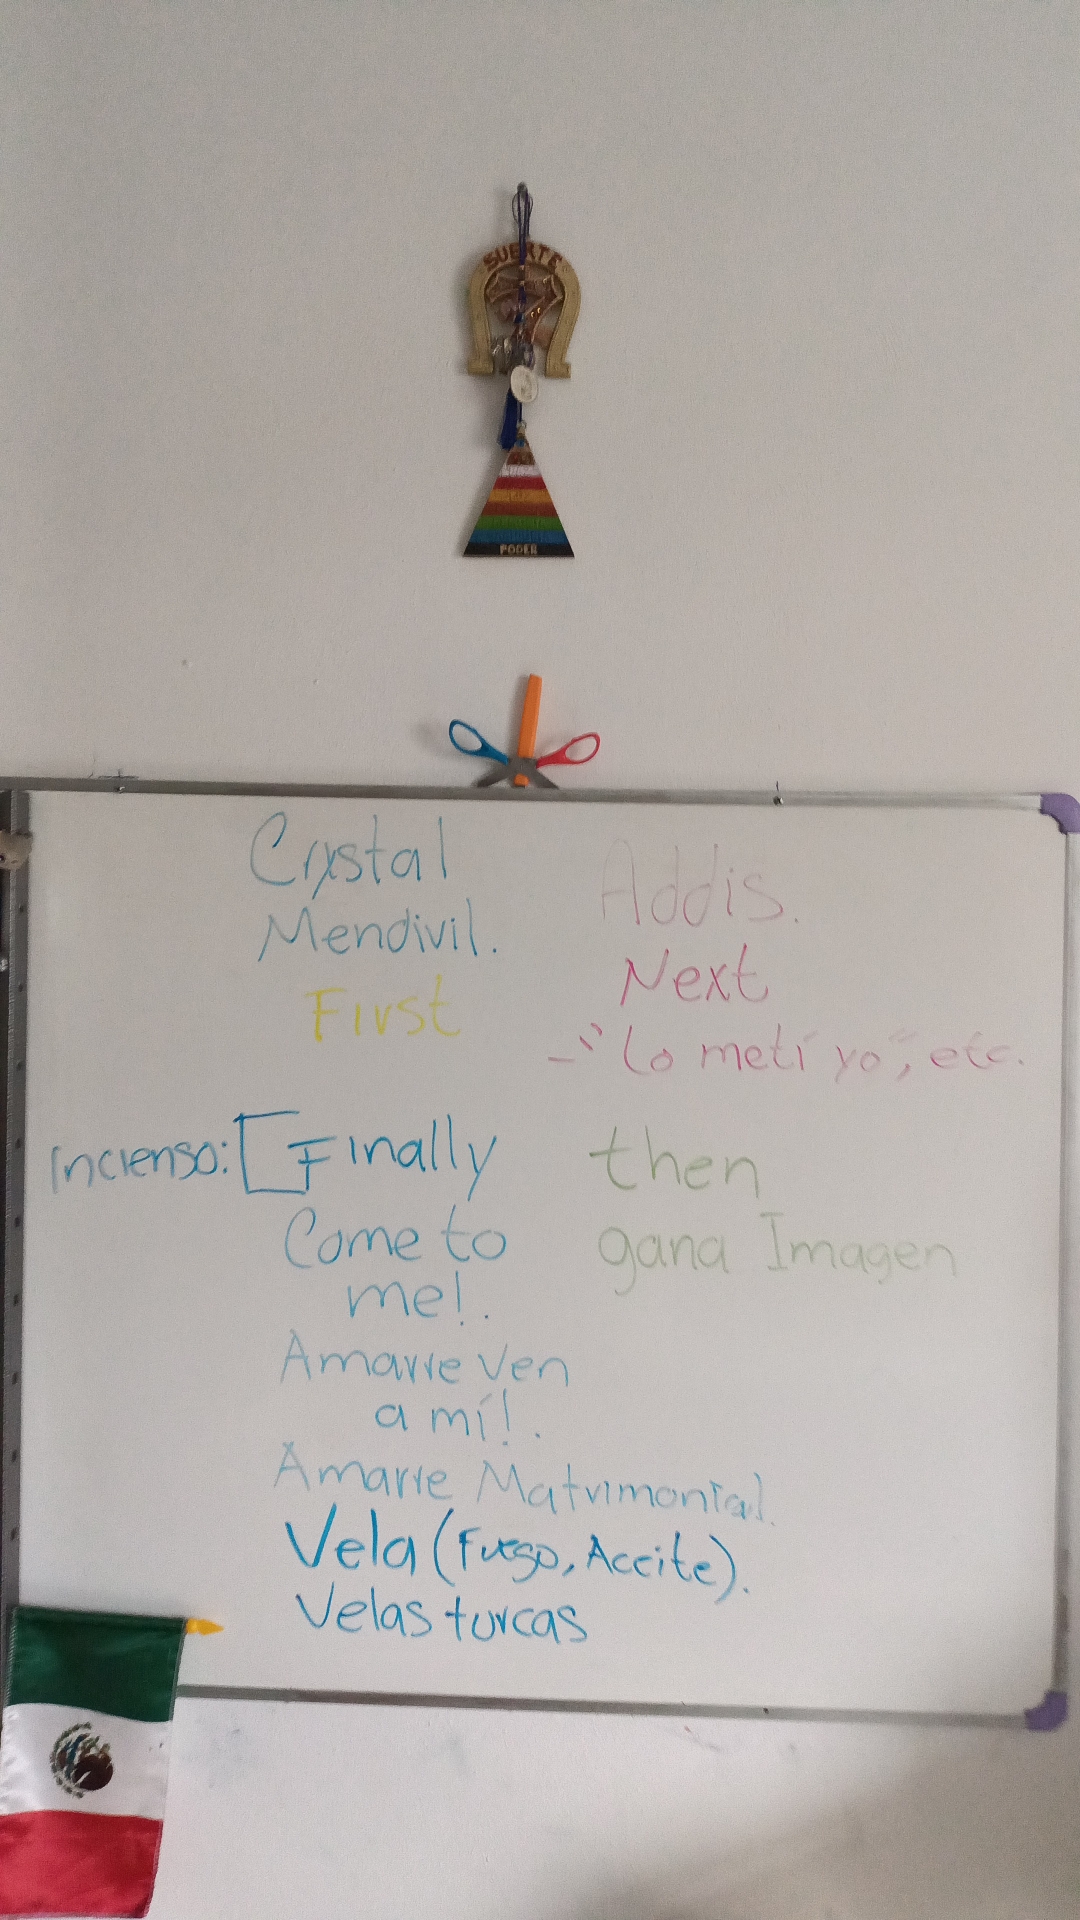 SUERTE
PODER
Crystal
Mendivil.
First
Addis.
Next
-"lo metí yo", etc.
Incienso: [Finally
Come to
me!.
Amarre ven
a mí!.
Amarre Matrimonial.
Vela (Fuego, Aceite).
Velas turcas
then
gana Imagen